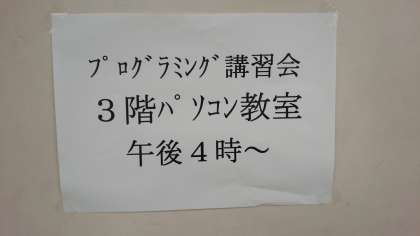 ﾌﾟﾛｸﾞﾗﾐﾝｸﾞ講習会
３階ﾊﾟｿｺﾝ教室
午後４時～